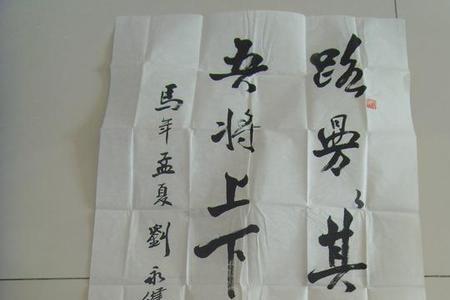 路曼〻其
吾将上下
馬年孟夏劉永